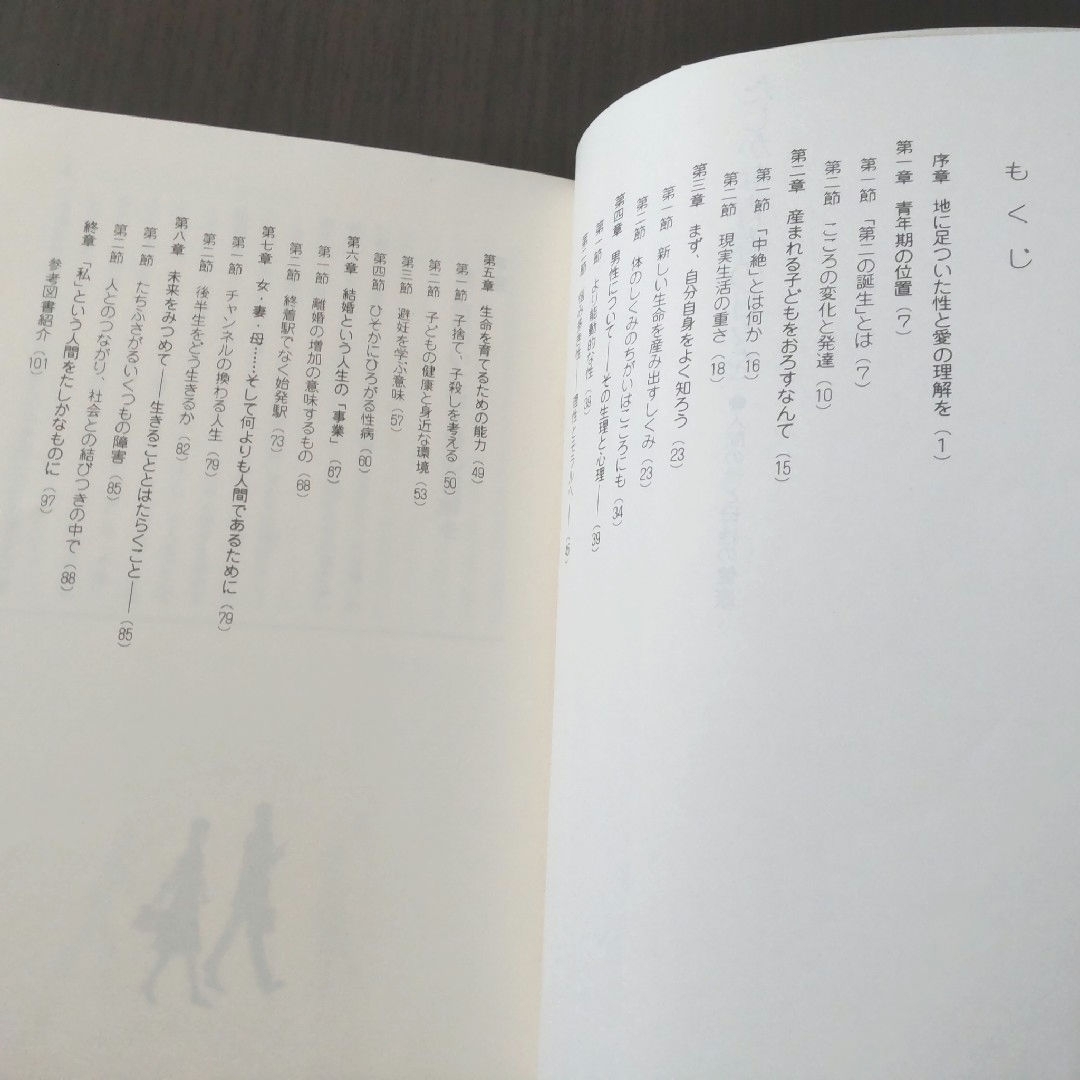 もくじ
序章 地に足ついた性と愛の理解を (1)
第一章 青年期の位置 (7)
第一節 「第二の誕生」とは (7)
第二節 こころの変化と発達 (10)
第二章 産まれる子どもをおろすなんて (15)
第一節 「中絶」とは何か (16)
第二節 現実生活の重さ (18)
第三章 まず、自分自身をよく知ろう (23)
第一節 新しい生命を産み出すしくみ (23)
第二節 体のしくみのちがいはこころにも (34)
第四章 男性について——その生理と心理—— (39)
第一節 より能動的な性 (39)
第二節
第五章 生命を育てるための能力 (49)
第一節 子捨て、子殺しを考える (50)
第二節 子どもの健康と身近な環境 (53)
第三節 避妊を学ぶ意味 (57)
第四節 ひそかにひろがる性病 (60)
第六章 結婚という人生の「事業」 (67)
第一節 離婚の増加の意味するもの (68)
第二節 終着駅でなく始発駅 (73)
第七章 女・妻・母……そして何よりも人間であるために (79)
第一節 チャンネルの換わる人生 (79)
第二節 後半生をどう生きるか (82)
第八章 未来をみつめて——生きることとはたらくこと—— (85)
第一節 たちふさがるいくつもの障害 (85)
第二節 人とのつながり、社会との結びつきの中で (88)
終章 「私」という人間をたしかなものに (97)
参考図書紹介 (101)